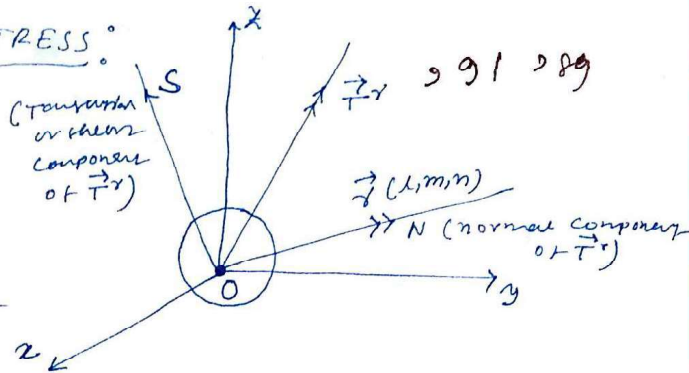 TRESS:
Z
S
(Tangential
or shear
component
of T⃗ʳ)
T⃗ʳ
, 91 , 89
r⃗ (l, m, n)
N (normal component
of T⃗ʳ)
O
y
x